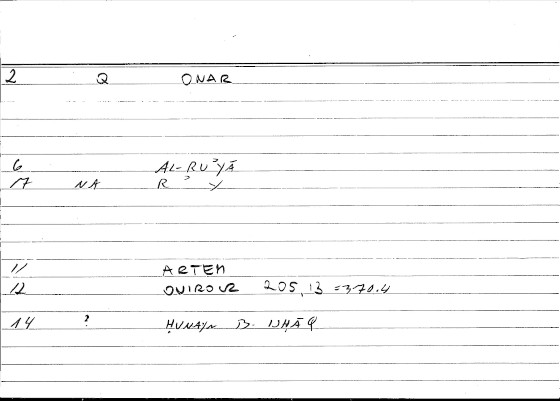 2 Q ONAR
6 AL-RUʾYĀ
17 NA R ʾ Y
11 ARTEM
12 ONIROUR 205, 13 =370.4
14 ? ḤUNAYN B. ISḤĀQ